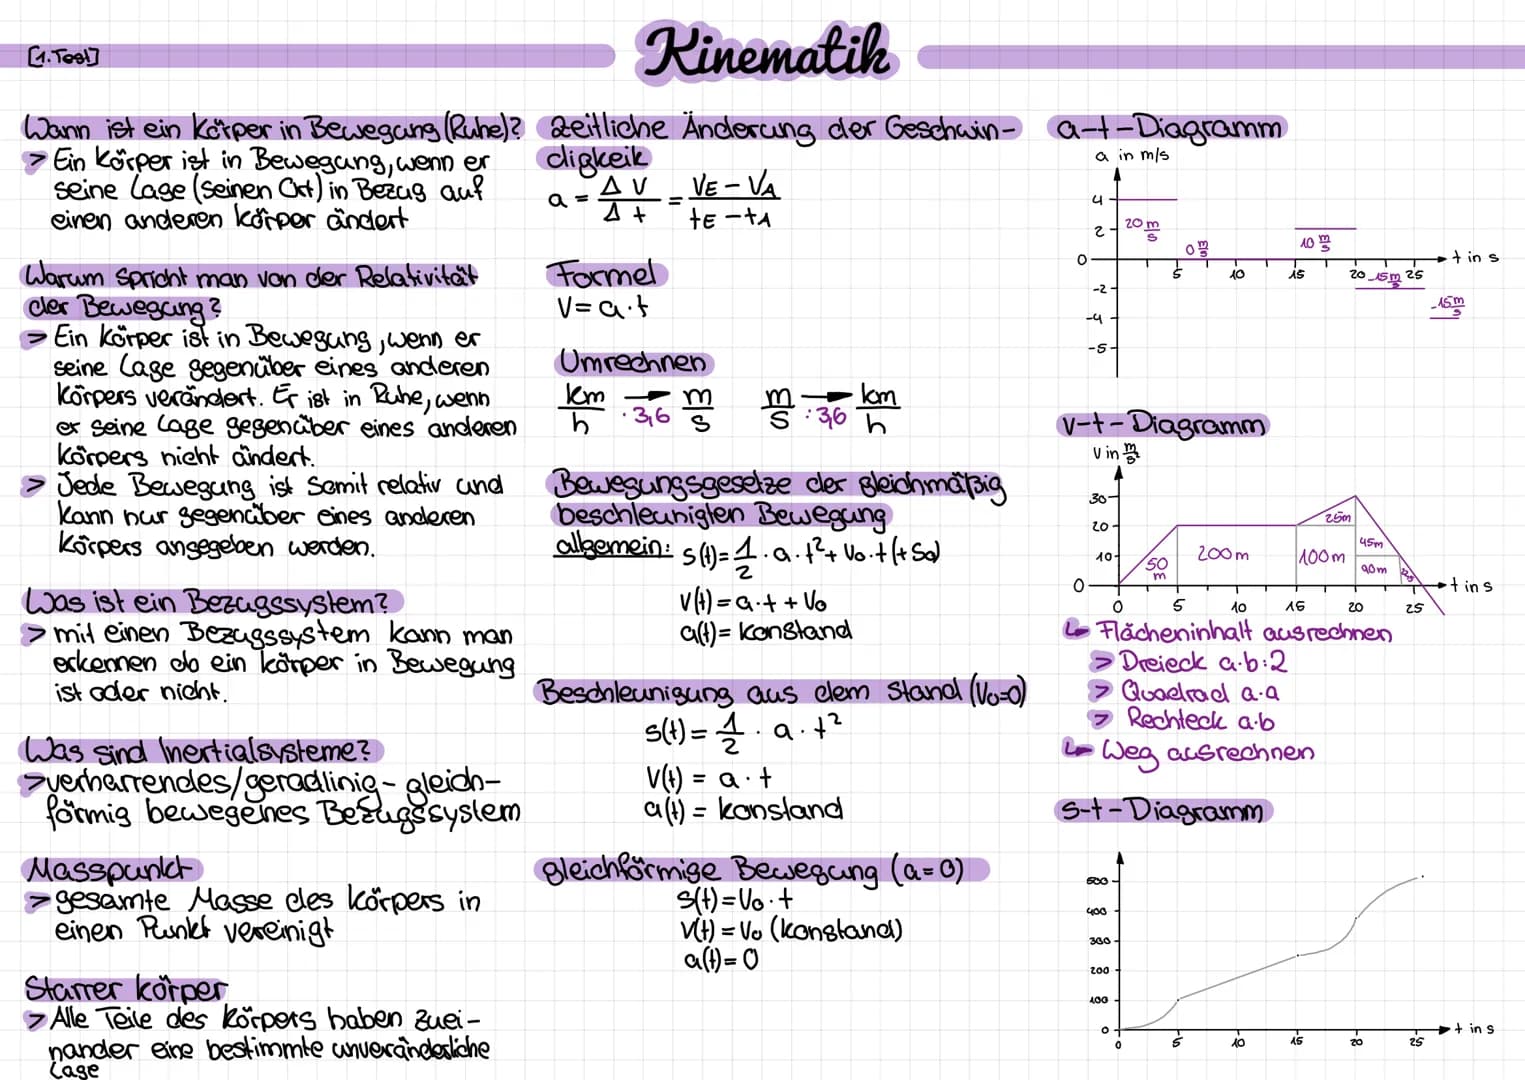 [1. Test]
Kinematik
Wann ist ein Körper in Bewegung (Ruhe)?
> Ein Körper ist in Bewegung, wenn er
seine Lage (seinen Ort) in Bezug auf
einen anderen Körper ändert
Warum spricht man von der Relativität
der Bewegung?
> Ein Körper ist in Bewegung, wenn er
seine Lage gegenüber eines anderen
Körpers verändert. Er ist in Ruhe, wenn
er seine Lage gegenüber eines anderen
Körpers nicht ändert.
> Jede Bewegung ist somit relativ und
kann nur gegenüber eines anderen
Körpers angegeben werden.
Was ist ein Bezugssystem?
> mit einen Bezugssystem kann man
erkennen ob ein körper in Bewegung
ist oder nicht.
Was sind Inertialsysteme?
> verharrendes/geradlinig-gleich-
förmig bewegenes Bezugssystem
Masspunkt
> gesamte Masse des Körpers in
einen Punkt vereinigt
Starrer körper
> Alle Teile des Körpers haben zuei-
nander eine bestimmte unveränderliche
Lage
zeitliche Änderung der Geschwin-
digkeik
a = ΔV/Δt = (VE - VA)/(tE - tA)
Formel
V = a·t
Umrechnen
km/h → ·3,6 m/s   m/s → :3,6 km/h
Bewegungsgesetze der gleichmäßig
beschleunigten Bewegung
allgemein: s(t) = 1/2 · a · t² + V₀ · t (+ S₀)
V(t) = a·t + V₀
a(t) = konstand
Beschleunigung aus dem Stand (V₀=0)
s(t) = 1/2 · a · t²
V(t) = a · t
a(t) = konstand
gleichförmige Bewegung (a=0)
s(t) = V₀ · t
V(t) = V₀ (konstand)
a(t) = 0
a-t-Diagramm
a in m/s
4
2
0
-2
-4
-5
20 m/s
0 m/s
10 m/s
-15 m/s
-15 m/s
5 10 15 20 25
t in s
v-t-Diagramm
V in m/s²
30
20
10
0
50 m
200 m
100 m
25m
45m
90m
0 5 10 15 20 25
t in s
Flächeninhalt ausrechnen
> Dreieck a·b:2
> Quadrad a·a
> Rechteck a·b
Weg ausrechnen
s-t-Diagramm
500
400
300
200
100
0
0 5 10 15 20 25
t in s